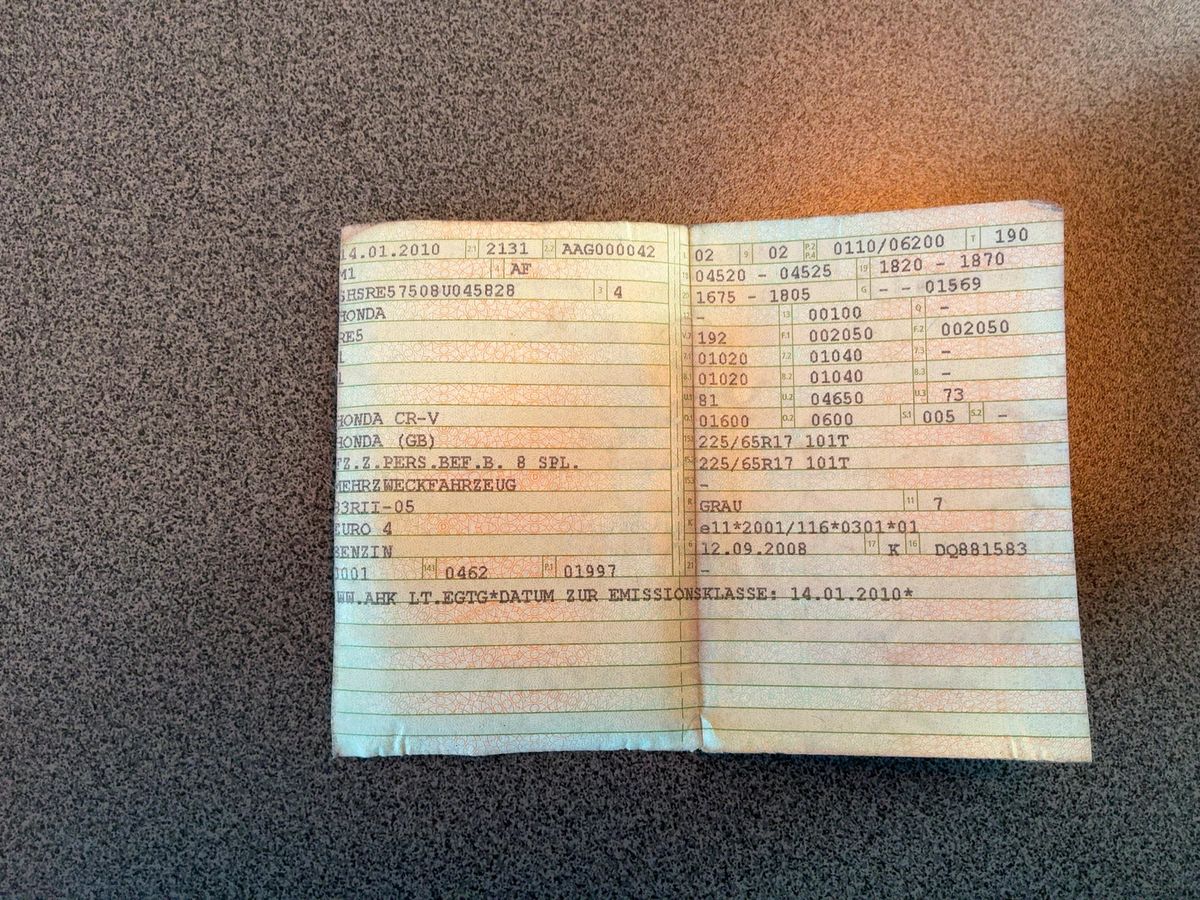 14.01.2010 2.1 2131 2.2 AAG000042
M1 4 AF
SHSRE57508U045828 3 4
HONDA
RE5
HONDA CR-V
HONDA (GB)
FZ.Z.PERS.BEF.B. 8 SPL.
MEHRZWECKFAHRZEUG
EURO 4
BENZIN
0001 14.1 0462 P.1 01997
02 9 02 P.2 P.4 0110/06200 T 190
04520 - 04525 19 1820 - 1870
1675 - 1805 G - - 01569
- 13 00100 Q -
192 F.1 002050 F.2 002050
01020 7.2 01040 7.3 -
01020 8.2 01040 8.3 -
81 U.2 04650 U.3 73
01600 O.2 0600 S.1 005 S.2 -
225/65R17 101T
225/65R17 101T
-
GRAU 11 7
e11*2001/116*0301*01
12.09.2008 17 K 16 DQ881583
21 -
WW.AHK LT.EGTG*DATUM ZUR EMISSIONSKLASSE: 14.01.2010*